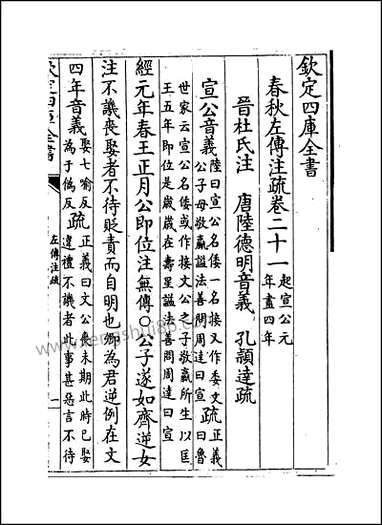 欽定四庫全書
春秋左傳注疏卷二十一起宣公元年盡四年
晉杜氏注　唐陸德明音義　孔穎達疏
宣公音義陸曰宣公名倭一名接又作委文公子母敬嬴諡法善問周達曰宣疏正義曰魯
世家云宣公名倭或作接文公之子敬嬴所生以匡王五年即位是歲歲在壽星諡法善問周達曰宣
經元年春王正月公即位注無傳○公子遂如齊逆女
注不譏喪娶者不待貶責而自明也卿為君逆例在文
四年音義娶七喻反為于偽反疏正義曰文公喪未期此時已娶違禮不譏者此事甚惡言不待
欽定四庫全書
左傳注疏
一